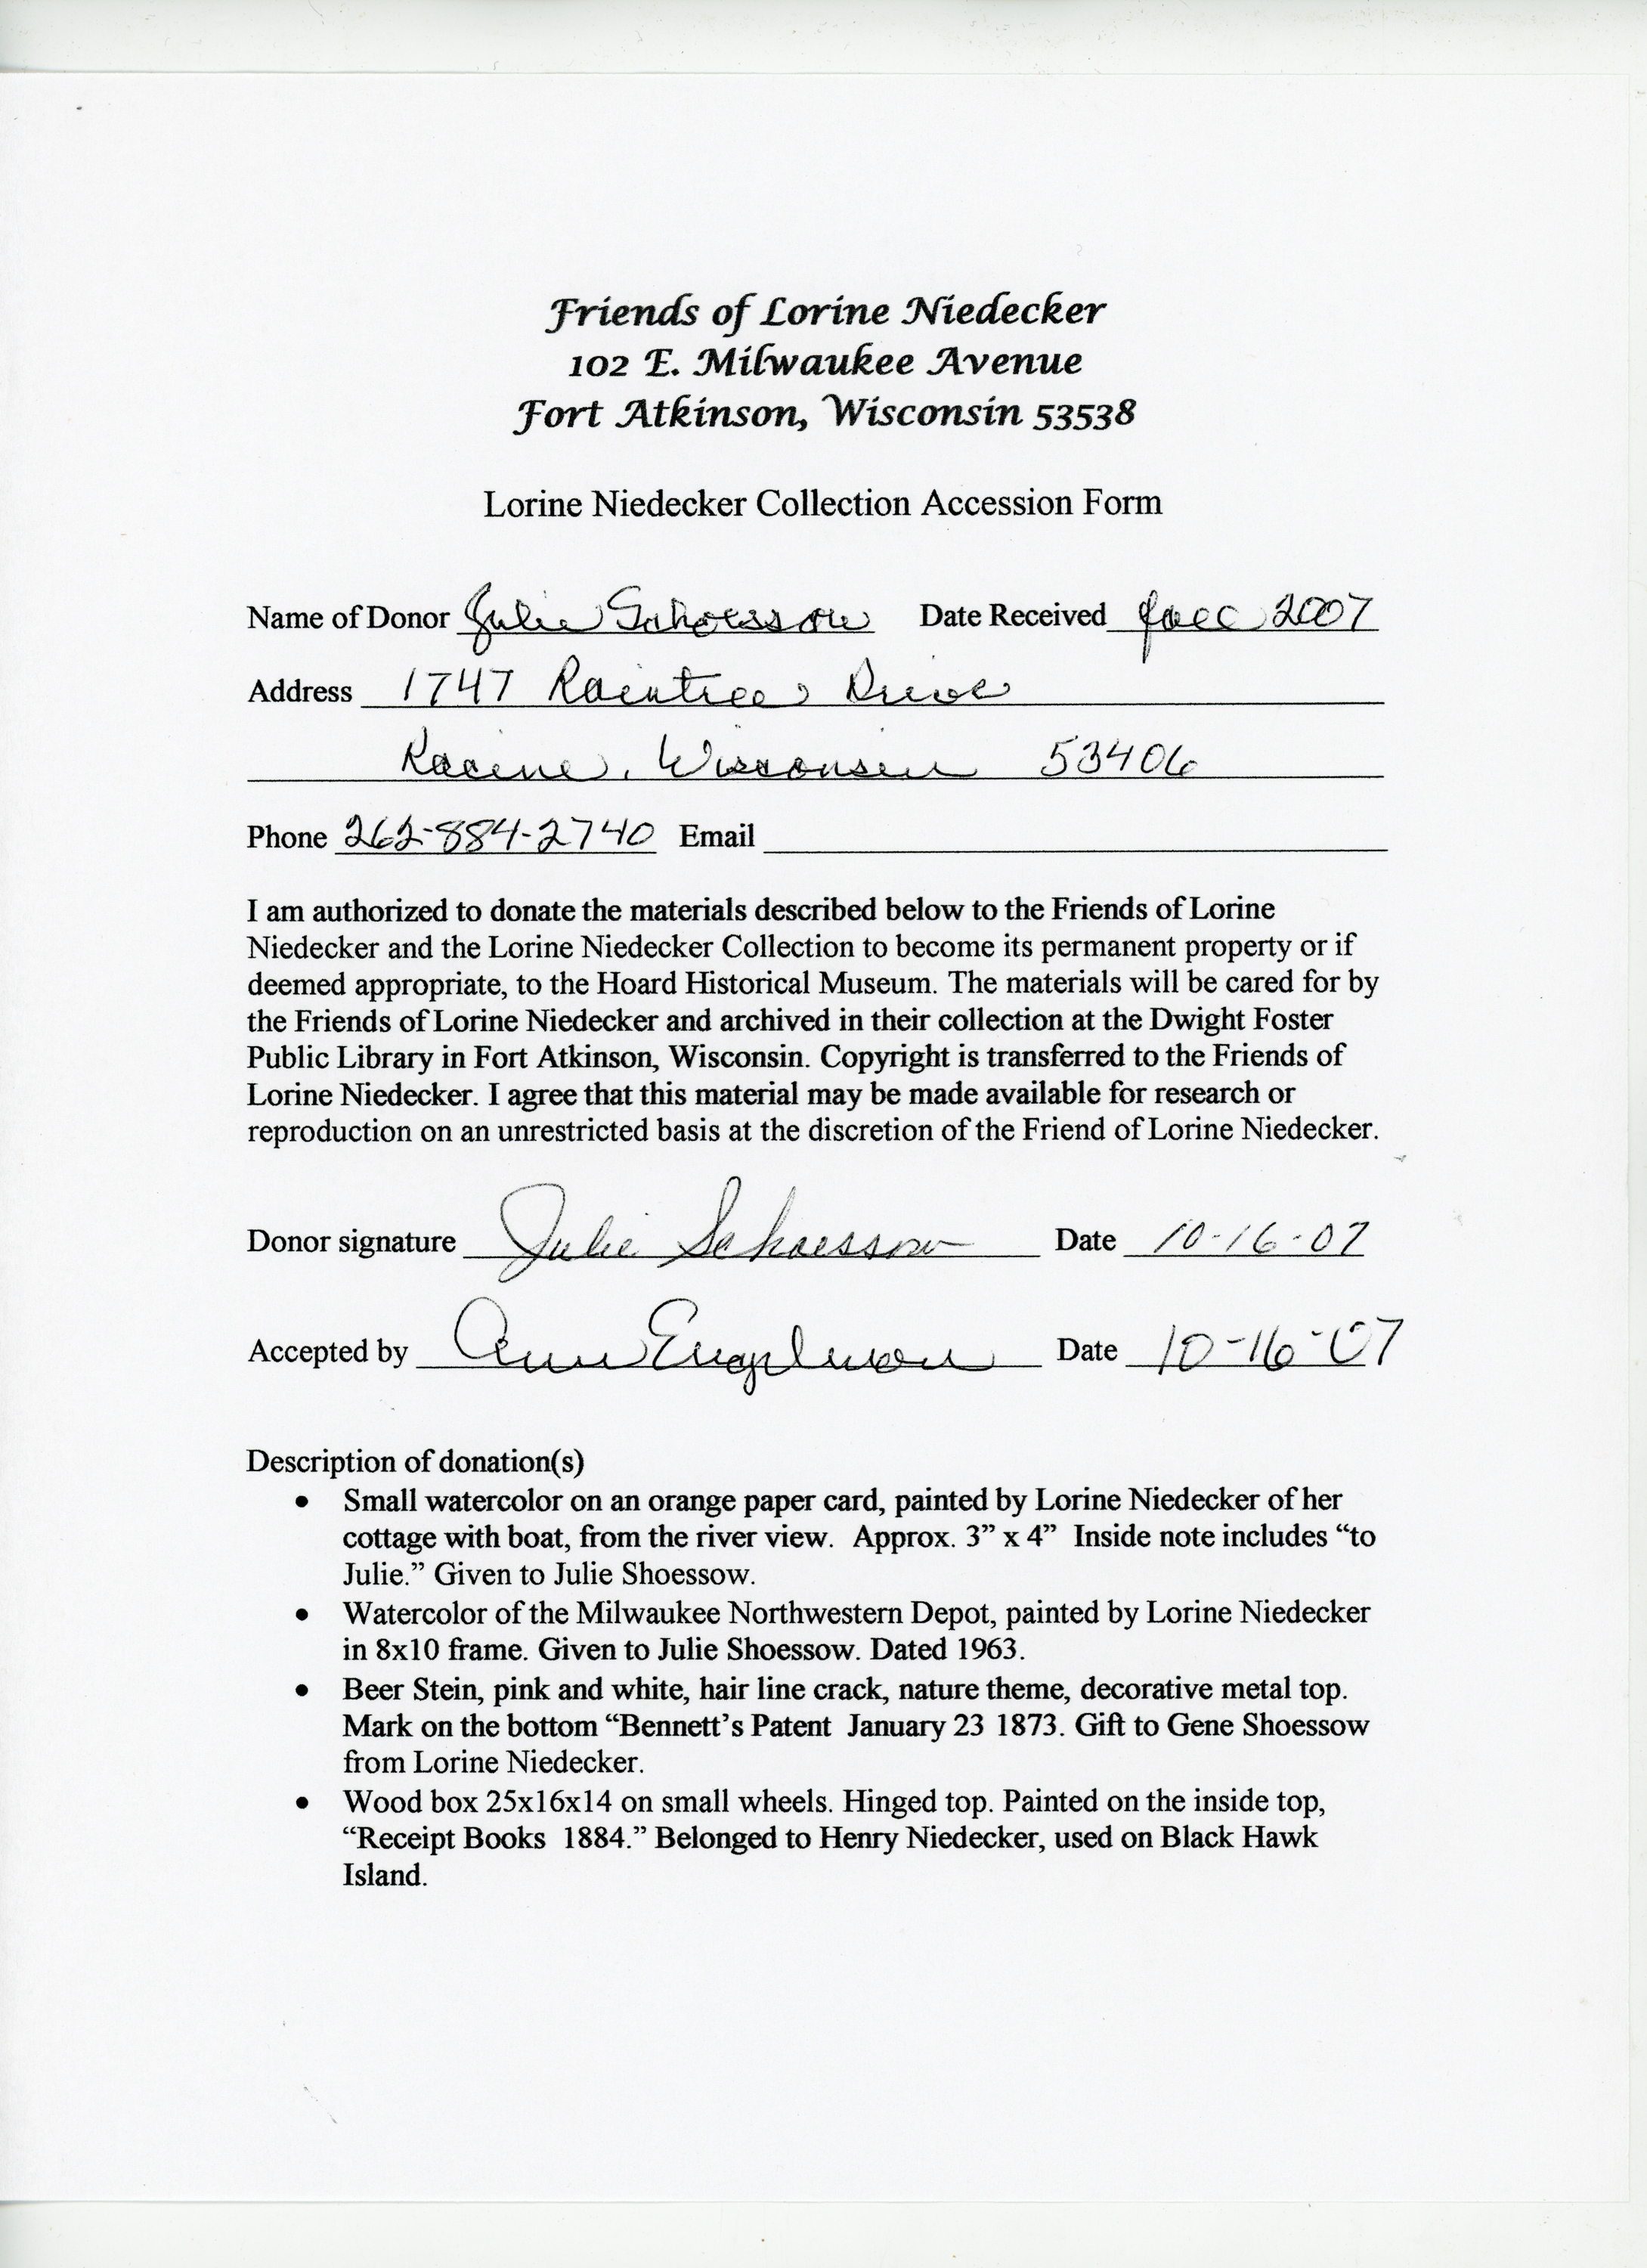 Friends of Lorine Niedecker
102 E. Milwaukee Avenue
Fort Atkinson, Wisconsin 53538
Lorine Niedecker Collection Accession Form
Name of Donor Julie Schoessow Date Received 2007
Address 1747 Raintree Drive
Racine, Wisconsin 53406
Phone 262-884-2740 Email
I am authorized to donate the materials described below to the Friends of Lorine
Niedecker and the Lorine Niedecker Collection to become its permanent property or if
deemed appropriate, to the Hoard Historical Museum. The materials will be cared for by
the Friends of Lorine Niedecker and archived in their collection at the Dwight Foster
Public Library in Fort Atkinson, Wisconsin. Copyright is transferred to the Friends of
Lorine Niedecker. I agree that this material may be made available for research or
reproduction on an unrestricted basis at the discretion of the Friend of Lorine Niedecker.
Donor signature Julie Schoessow Date 10-16-07
Accepted by Ann Engelman Date 10-16-07
Description of donation(s)
• Small watercolor on an orange paper card, painted by Lorine Niedecker of her
cottage with boat, from the river view. Approx. 3” x 4” Inside note includes “to
Julie.” Given to Julie Shoessow.
• Watercolor of the Milwaukee Northwestern Depot, painted by Lorine Niedecker
in 8x10 frame. Given to Julie Shoessow. Dated 1963.
• Beer Stein, pink and white, hair line crack, nature theme, decorative metal top.
Mark on the bottom “Bennett’s Patent January 23 1873. Gift to Gene Shoessow
from Lorine Niedecker.
• Wood box 25x16x14 on small wheels. Hinged top. Painted on the inside top,
“Receipt Books 1884.” Belonged to Henry Niedecker, used on Black Hawk
Island.